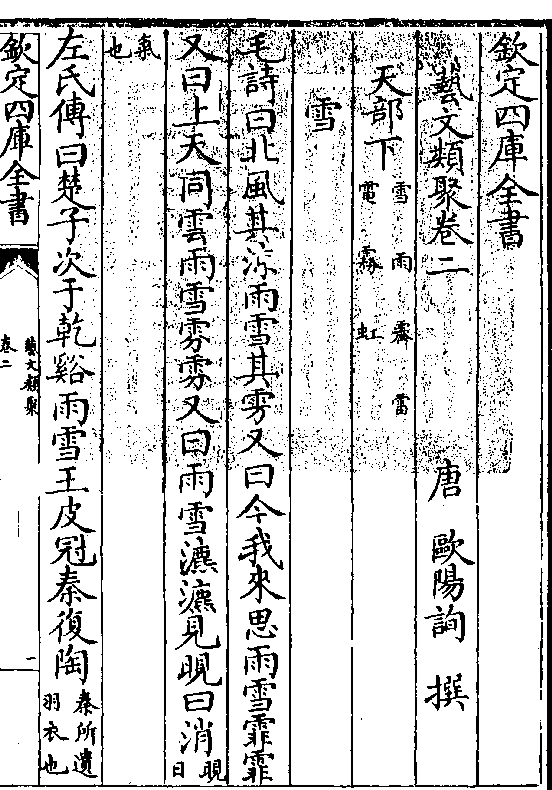 欽定四庫全書
藝文類聚卷二
唐 歐陽詢 撰
天部下 雪 雨 霽 雷
電 霧 虹
雪
毛詩曰北風其涼雨雪其雱又曰今我來思雨雪霏霏
又曰上天同雲雨雪雰雰又曰雨雪瀌瀌見晛曰消晛日
氣也
左氏傳曰楚子次于乾谿雨雪王皮冠秦復陶秦所遺羽衣也
欽定四庫全書
藝文類聚
卷二
一